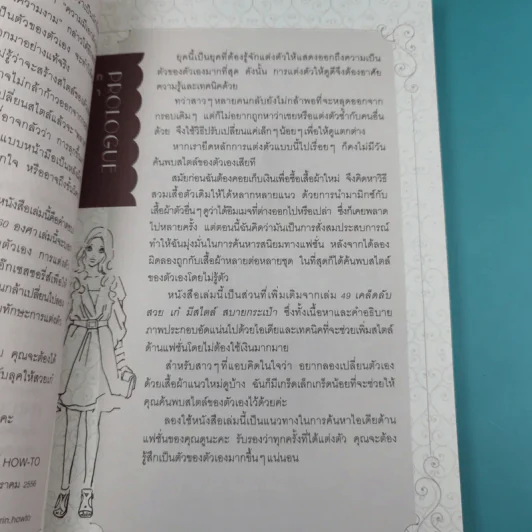 PROLOGUE
ยุคนี้เป็นยุคที่ต้องรู้จักแต่งตัวให้แสดงออกถึงความเป็น
ตัวของตัวเองมากที่สุด ดังนั้น การแต่งตัวให้ดูดีจึงต้องอาศัย
ความรู้และเทคนิคด้วย
ทว่าสาวๆ หลายคนกลับยังไม่กล้าพอที่จะหลุดออกจาก
กรอบเดิมๆ แต่ก็ไม่อยากถูกหาว่าเชยหรือแต่งตัวซ้ำกับคนอื่น
ด้วย จึงใช้วิธีปรับเปลี่ยนแค่เล็กๆ น้อยๆ เพื่อให้ดูแตกต่าง
หากเรายึดหลักการแต่งตัวแบบนี้ไปเรื่อยๆ ก็คงไม่มีวัน
ค้นพบสไตล์ของตัวเองเสียที
สมัยก่อนฉันต้องคอยเก็บเงินเพื่อซื้อเสื้อผ้าใหม่ จึงคิดหาวิธี
สวมเสื้อตัวเดิมให้ได้หลากหลายแนว ด้วยการนำมามิกซ์กับ
เสื้อผ้าตัวอื่นๆ ดูว่าได้ธีมเมจที่ต่างออกไปหรือเปล่า ซึ่งก็เคยพลาด
ไปหลายครั้ง แต่ตอนนี้ฉันคิดว่ามันเป็นการสั่งสมประสบการณ์
ทำให้ฉันมุ่งมั่นในการค้นหารสนิยมทางแฟชั่น หลังจากได้ลอง
ผิดลองถูกกับเสื้อผ้าหลายต่อหลายชุด ในที่สุดก็ได้ค้นพบสไตล์
ของตัวเองโดยไม่รู้ตัว
หนังสือเล่มนี้เป็นส่วนที่เพิ่มเติมจากเล่ม 49 เคล็ดลับ
สวย เก๋ มีสไตล์ สบายกระเป๋า ซึ่งทั้งเนื้อหาและคำอธิบาย
ภาพประกอบอัดแน่นไปด้วยไอเดียและเทคนิคที่จะช่วยเพิ่มสไตล์
ด้านแฟชั่นโดยไม่ต้องใช้เงินมากมาย
สำหรับสาวๆ ที่แอบคิดในใจว่า อยากลองเปลี่ยนตัวเอง
ด้วยเสื้อผ้าแนวใหม่ดูบ้าง ฉันก็มีเกร็ดเล็กเกร็ดน้อยที่จะช่วยให้
คุณค้นพบสไตล์ของตัวเองไว้ด้วยค่ะ
ลองใช้หนังสือเล่มนี้เป็นแนวทางในการค้นหาไอเดียด้าน
แฟชั่นของคุณดูนะคะ รับรองว่าทุกครั้งที่ได้แต่งตัว คุณจะต้อง
รู้สึกเป็นตัวของตัวเองมากขึ้นๆ แน่นอน